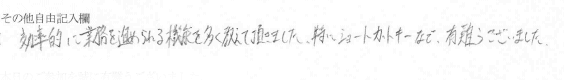 その他自由記入欄
効率的に業務を進められる機能を多く教えて頂きました。特にショートカットキーなど、有難うございました。